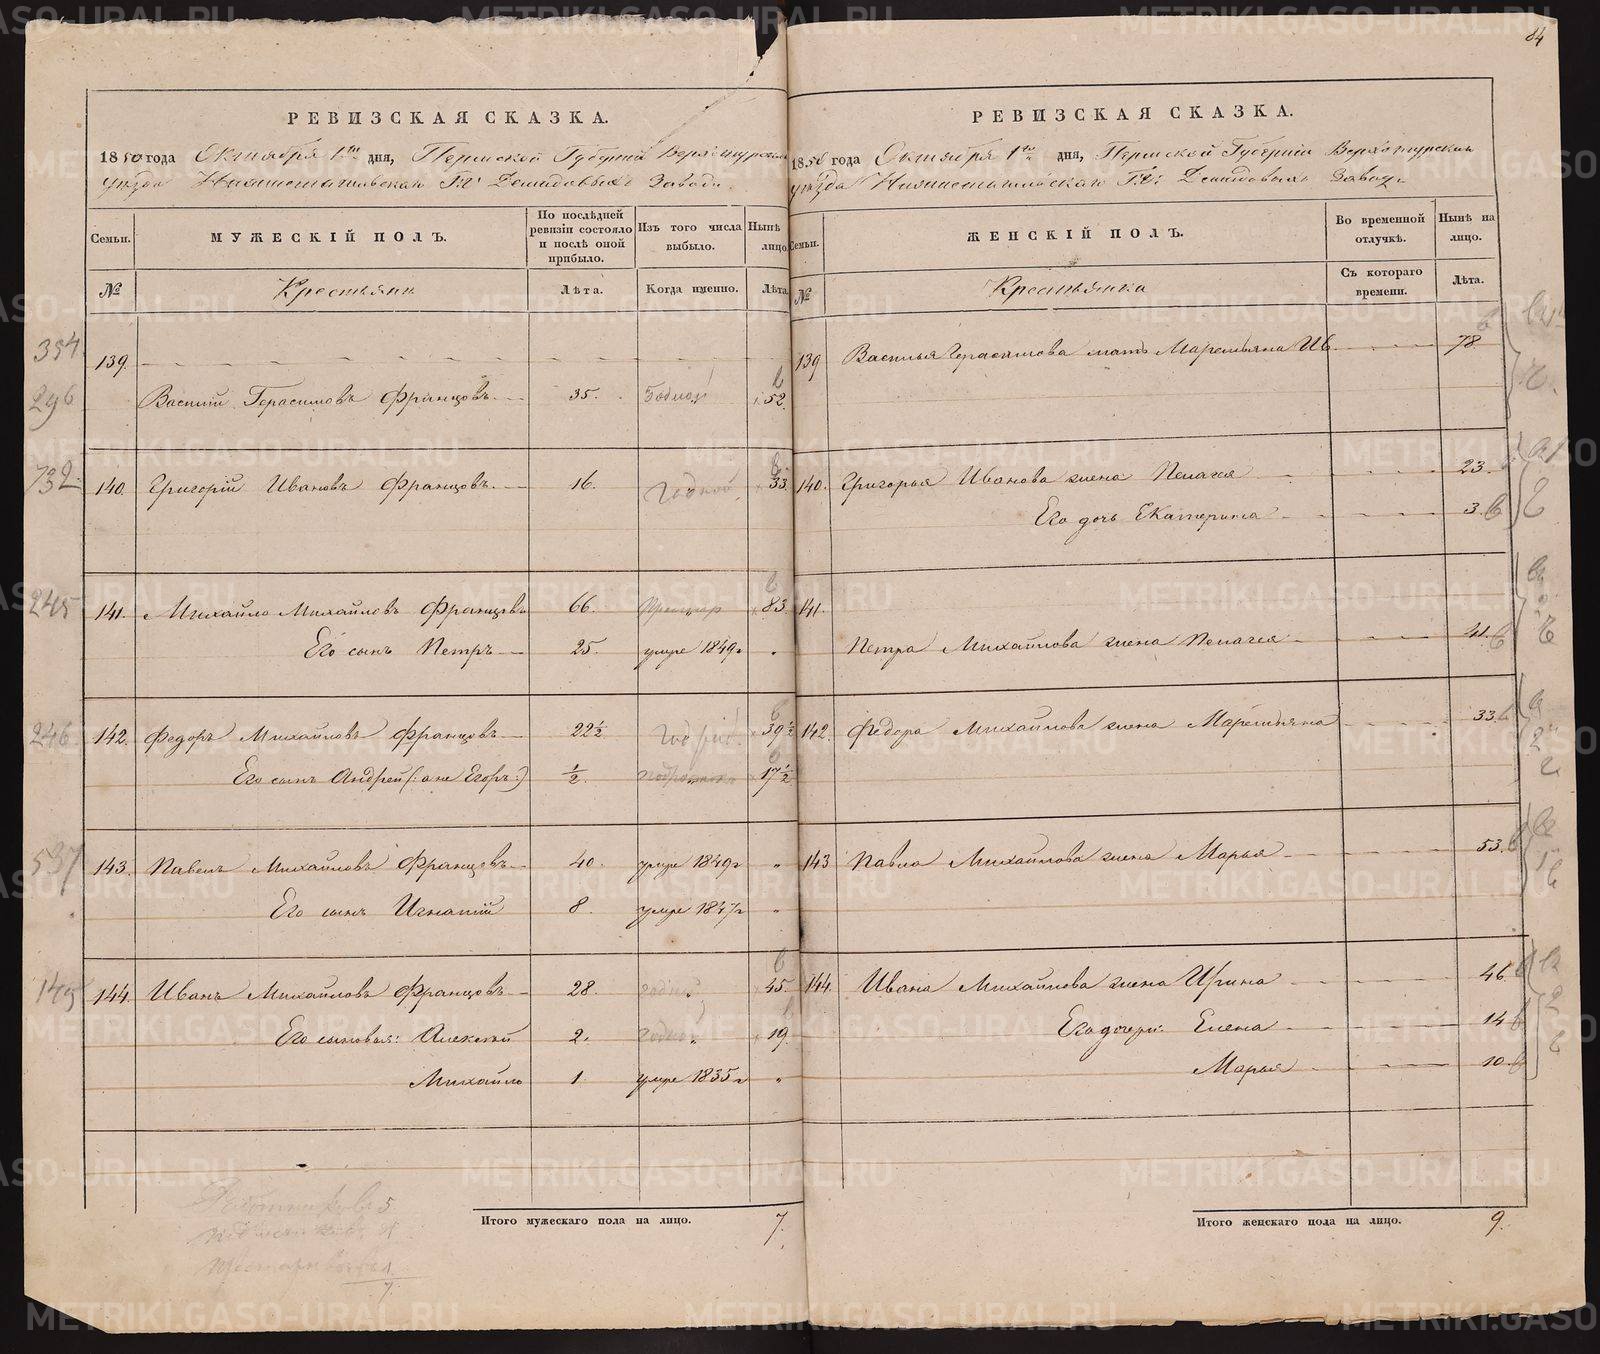 84
РЕВИЗСКАЯ СКАЗКА.
1850 года Октября 1го дня, Пермской Губерніи Верхотурскаго
уѣзда Нижнетагильскаго Г.г. Демидовыхъ Завода
Семьи.
МУЖЕСКІЙ ПОЛЪ.
По послѣдней ревизіи состояло и послѣ оной прибыло.
Изъ того числа выбыло.
Нынѣ на лицо.
№
Крестьянъ
Лѣта.
Когда именно.
Лѣта.
354.
139.
296
Василій Герасимовъ Францовъ 35. Годной 52.
732
140. Григорій Ивановъ Францовъ. 16. годной 33.
245
141. Михайло Михайловъ Францовъ 66. 83
Его сынъ Петръ 25. умре 1849г "
246
142. Федоръ Михайловъ Францовъ 22½ годной 39½
Его сынъ Андрей (: а не Егоръ:) ½. 17½
537
143. Павелъ Михайловъ Францовъ 40. умре 1849г "
Его сынъ Игнатій 8. умре 1847г "
145
144. Иванъ Михайловъ Францовъ 28. годной 45.
Его сыновья: Алексѣй 2. годной 19
Михайло 1. умре 1835г "
5
1
7
Итого мужескаго пола на лицо. 7.
РЕВИЗСКАЯ СКАЗКА.
1850 года Октября 1го дня, Пермской Губерніи Верхотурскаго
уѣзда Нижнетагильскаго Г.г. Демидовыхъ Завода
Семьи.
ЖЕНСКІЙ ПОЛЪ.
Во временной отлучкѣ.
Нынѣ на лицо.
№
Крестьянка
Съ котораго времени.
Лѣта.
139 Василья Герасимова мать Маремьяна Ив. 78.
140. Григорья Иванова жена Пелагея 23.
Его дочь Екатерина 3.
141.
Петра Михайлова жена Пелагея 41.
142. Федора Михайлова жена Маремьяна 33.
143 Павла Михайлова жена Марья 53.
144. Ивана Михайлова жена Ирина 46.
Его дочери: Елена 14
Марья 10.
Итого женскаго пола на лицо. 9.
METRIKI.GASO-URAL.RU